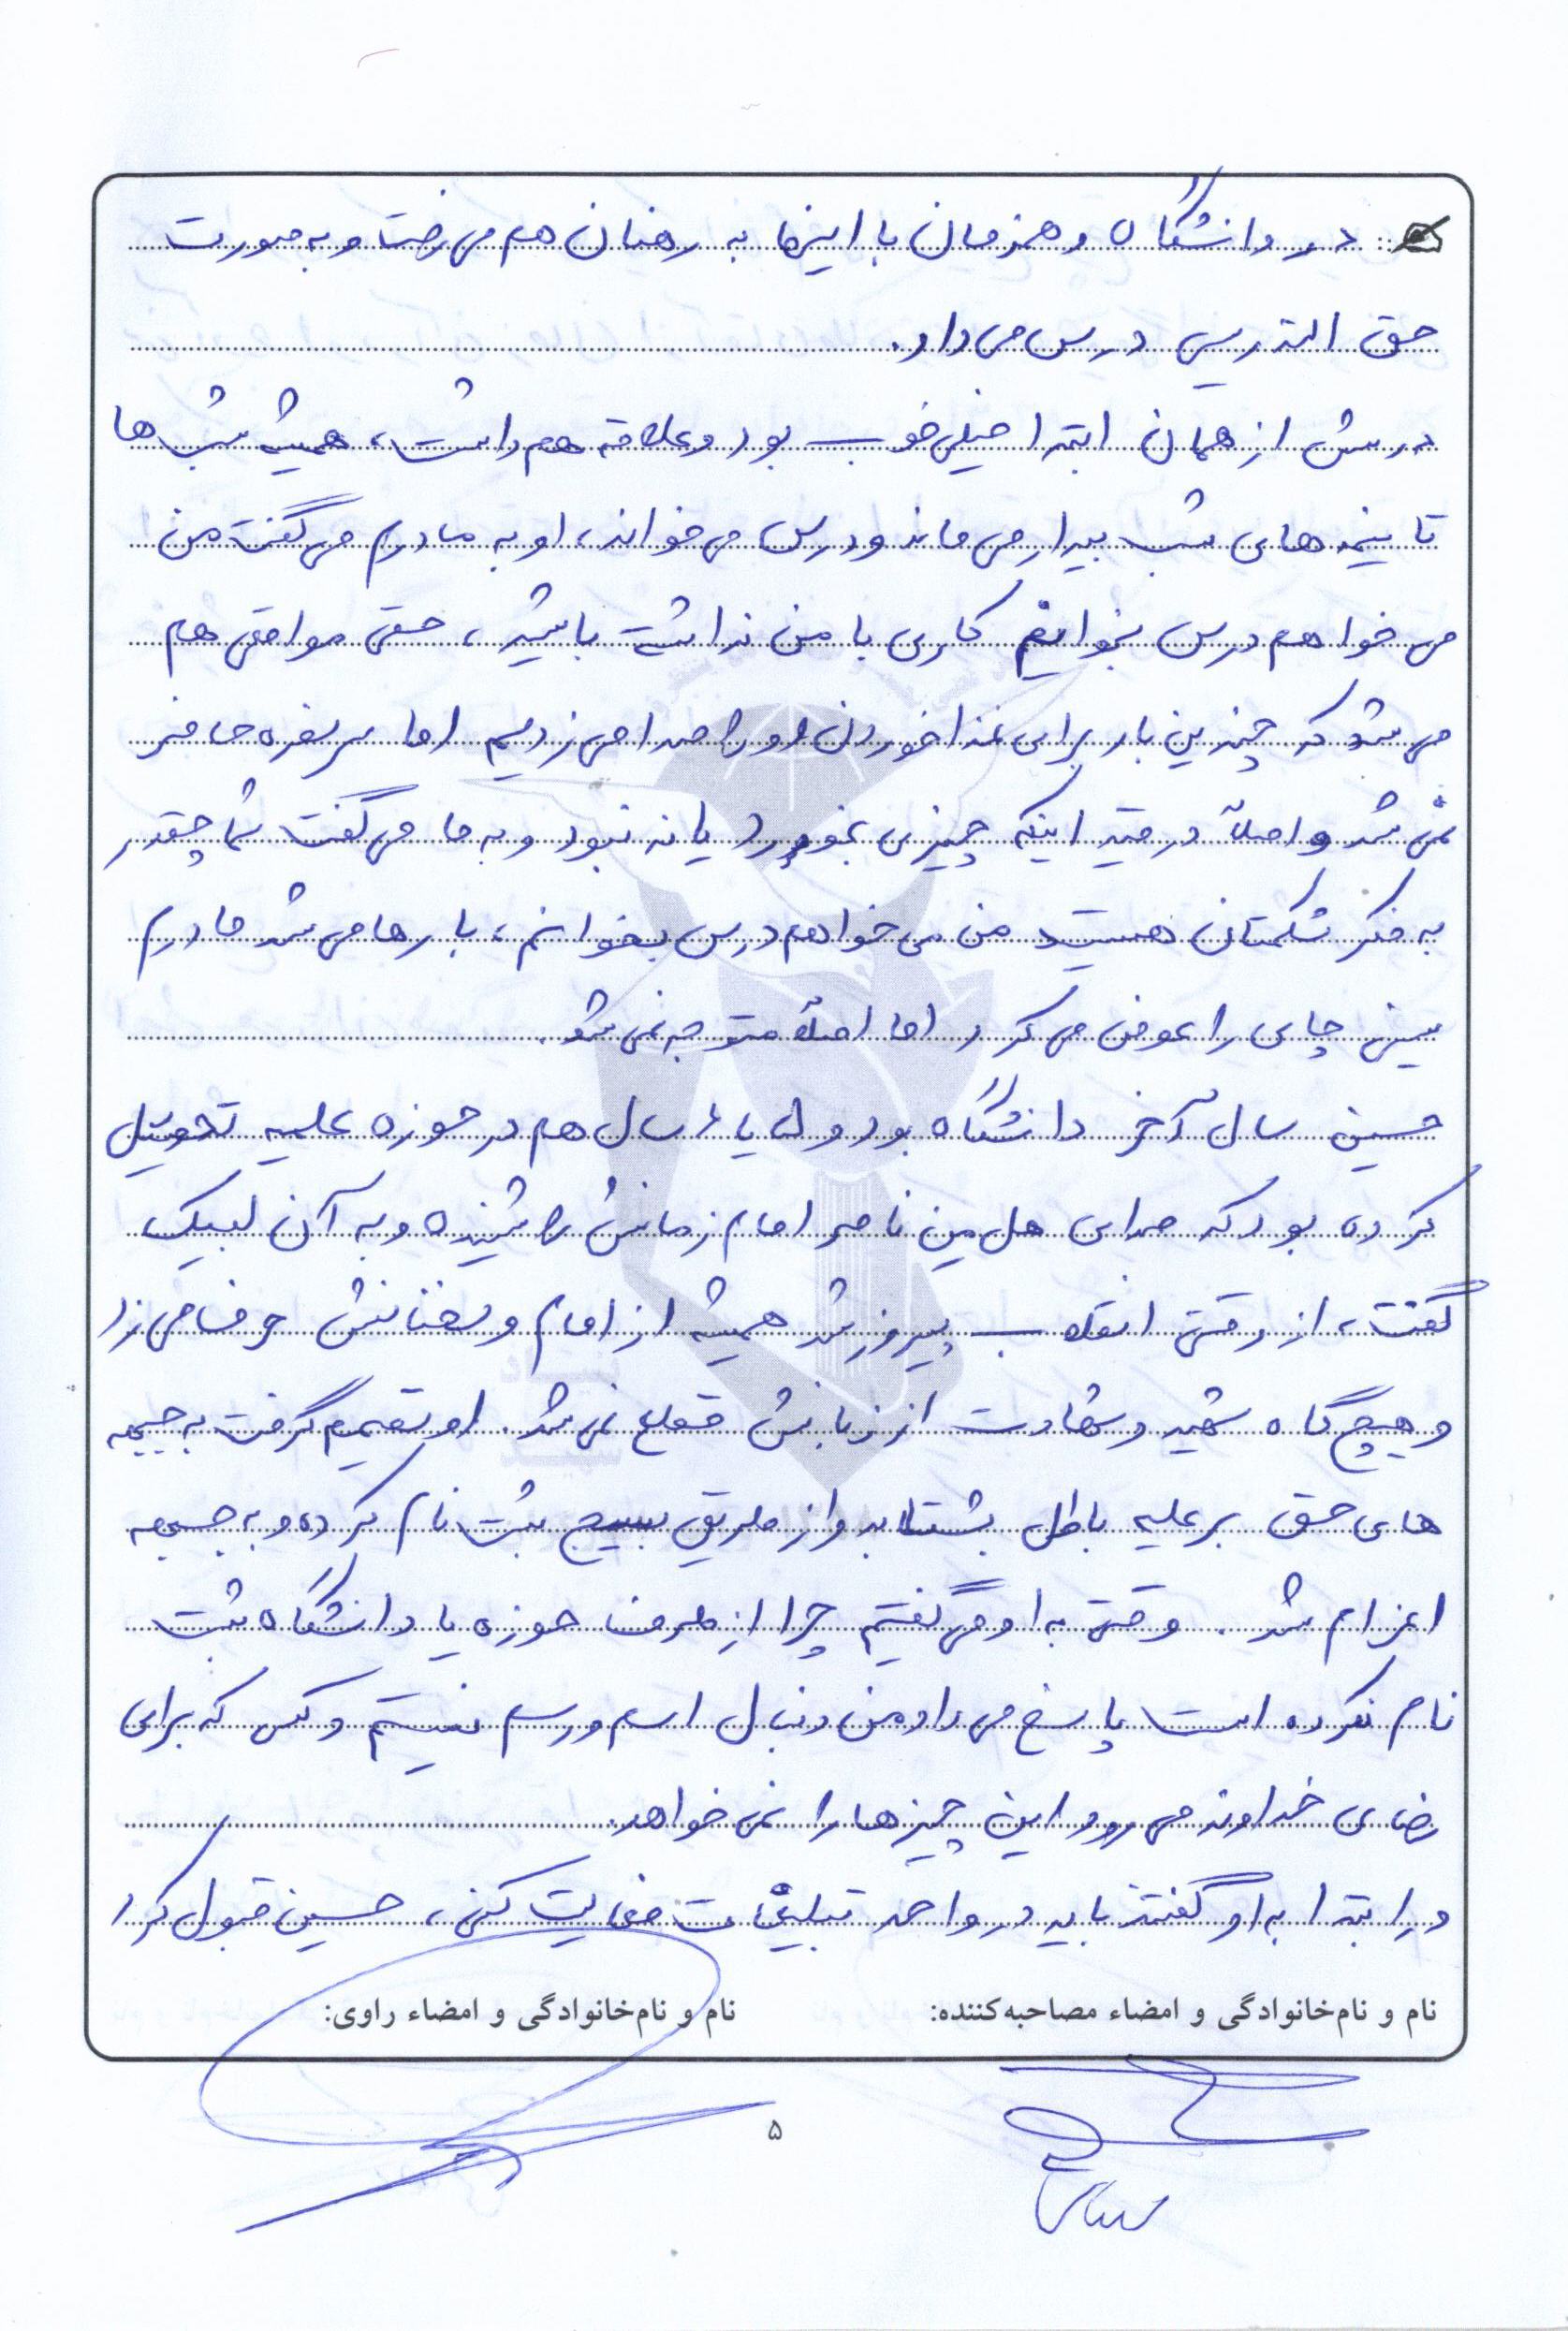 در دانشگاه و همزمان با اینها به رهنان هم می رفت و به صورت
حق التدریس درس می داد.
درسش از همان ابتدا خیلی خوب بود و علاقه هم داشت، همیشه شب ها
تا نیمه های شب بیدار می ماند و درس می خواند، او به مادرم می گفت من
می خواهم درس بخوانم کاری با من نداشته باشید، حتی مواقعی هم
می شد که چندین بار برای غذا خوردن او را صدا می زدیم اما سر سفره حاضر
نمی شد و اصلاً در قید اینکه چیزی بخورد یا نه نبود و به ما می گفت شما چقدر
به فکر شکمتان هستید من می خواهم درس بخوانم، بارها می شد مادرم
سینی چای را عوض می کرد اما اصلاً متوجه نمی شد.
حسین سال آخر دانشگاه بود و ۵ یا ۶ سال هم در حوزه علمیه تحصیل
کرده بود که صدای هل من ناصر امام زمانش را شنیده و به آن لبیک
گفت، از وقتی انقلاب پیروز شد همیشه از امام و سخنانش حرف می زد
و هیچ گاه شهید و شهادت از زبانش قطع نمی شد. او تصمیم گرفت به جبهه
های حق بر علیه باطل بشتابد و از طریق بسیج ثبت نام کرده و به جبهه
اعزام شد. وقتی به او می گفتیم چرا از طرف حوزه یا دانشگاه ثبت
نام نکرده است پاسخ می داد من دنبال اسم و رسم نیستم و کسی که برای
رضای خداوند می رود این چیزها را نمی خواهد.
در ابتدا به او گفتند باید در واحد تبلیغات فعالیت کنی، حسین قبول کرد
نام و نام‌خانوادگی و امضاء مصاحبه‌کننده:
نام و نام‌خانوادگی و امضاء راوی:
۵